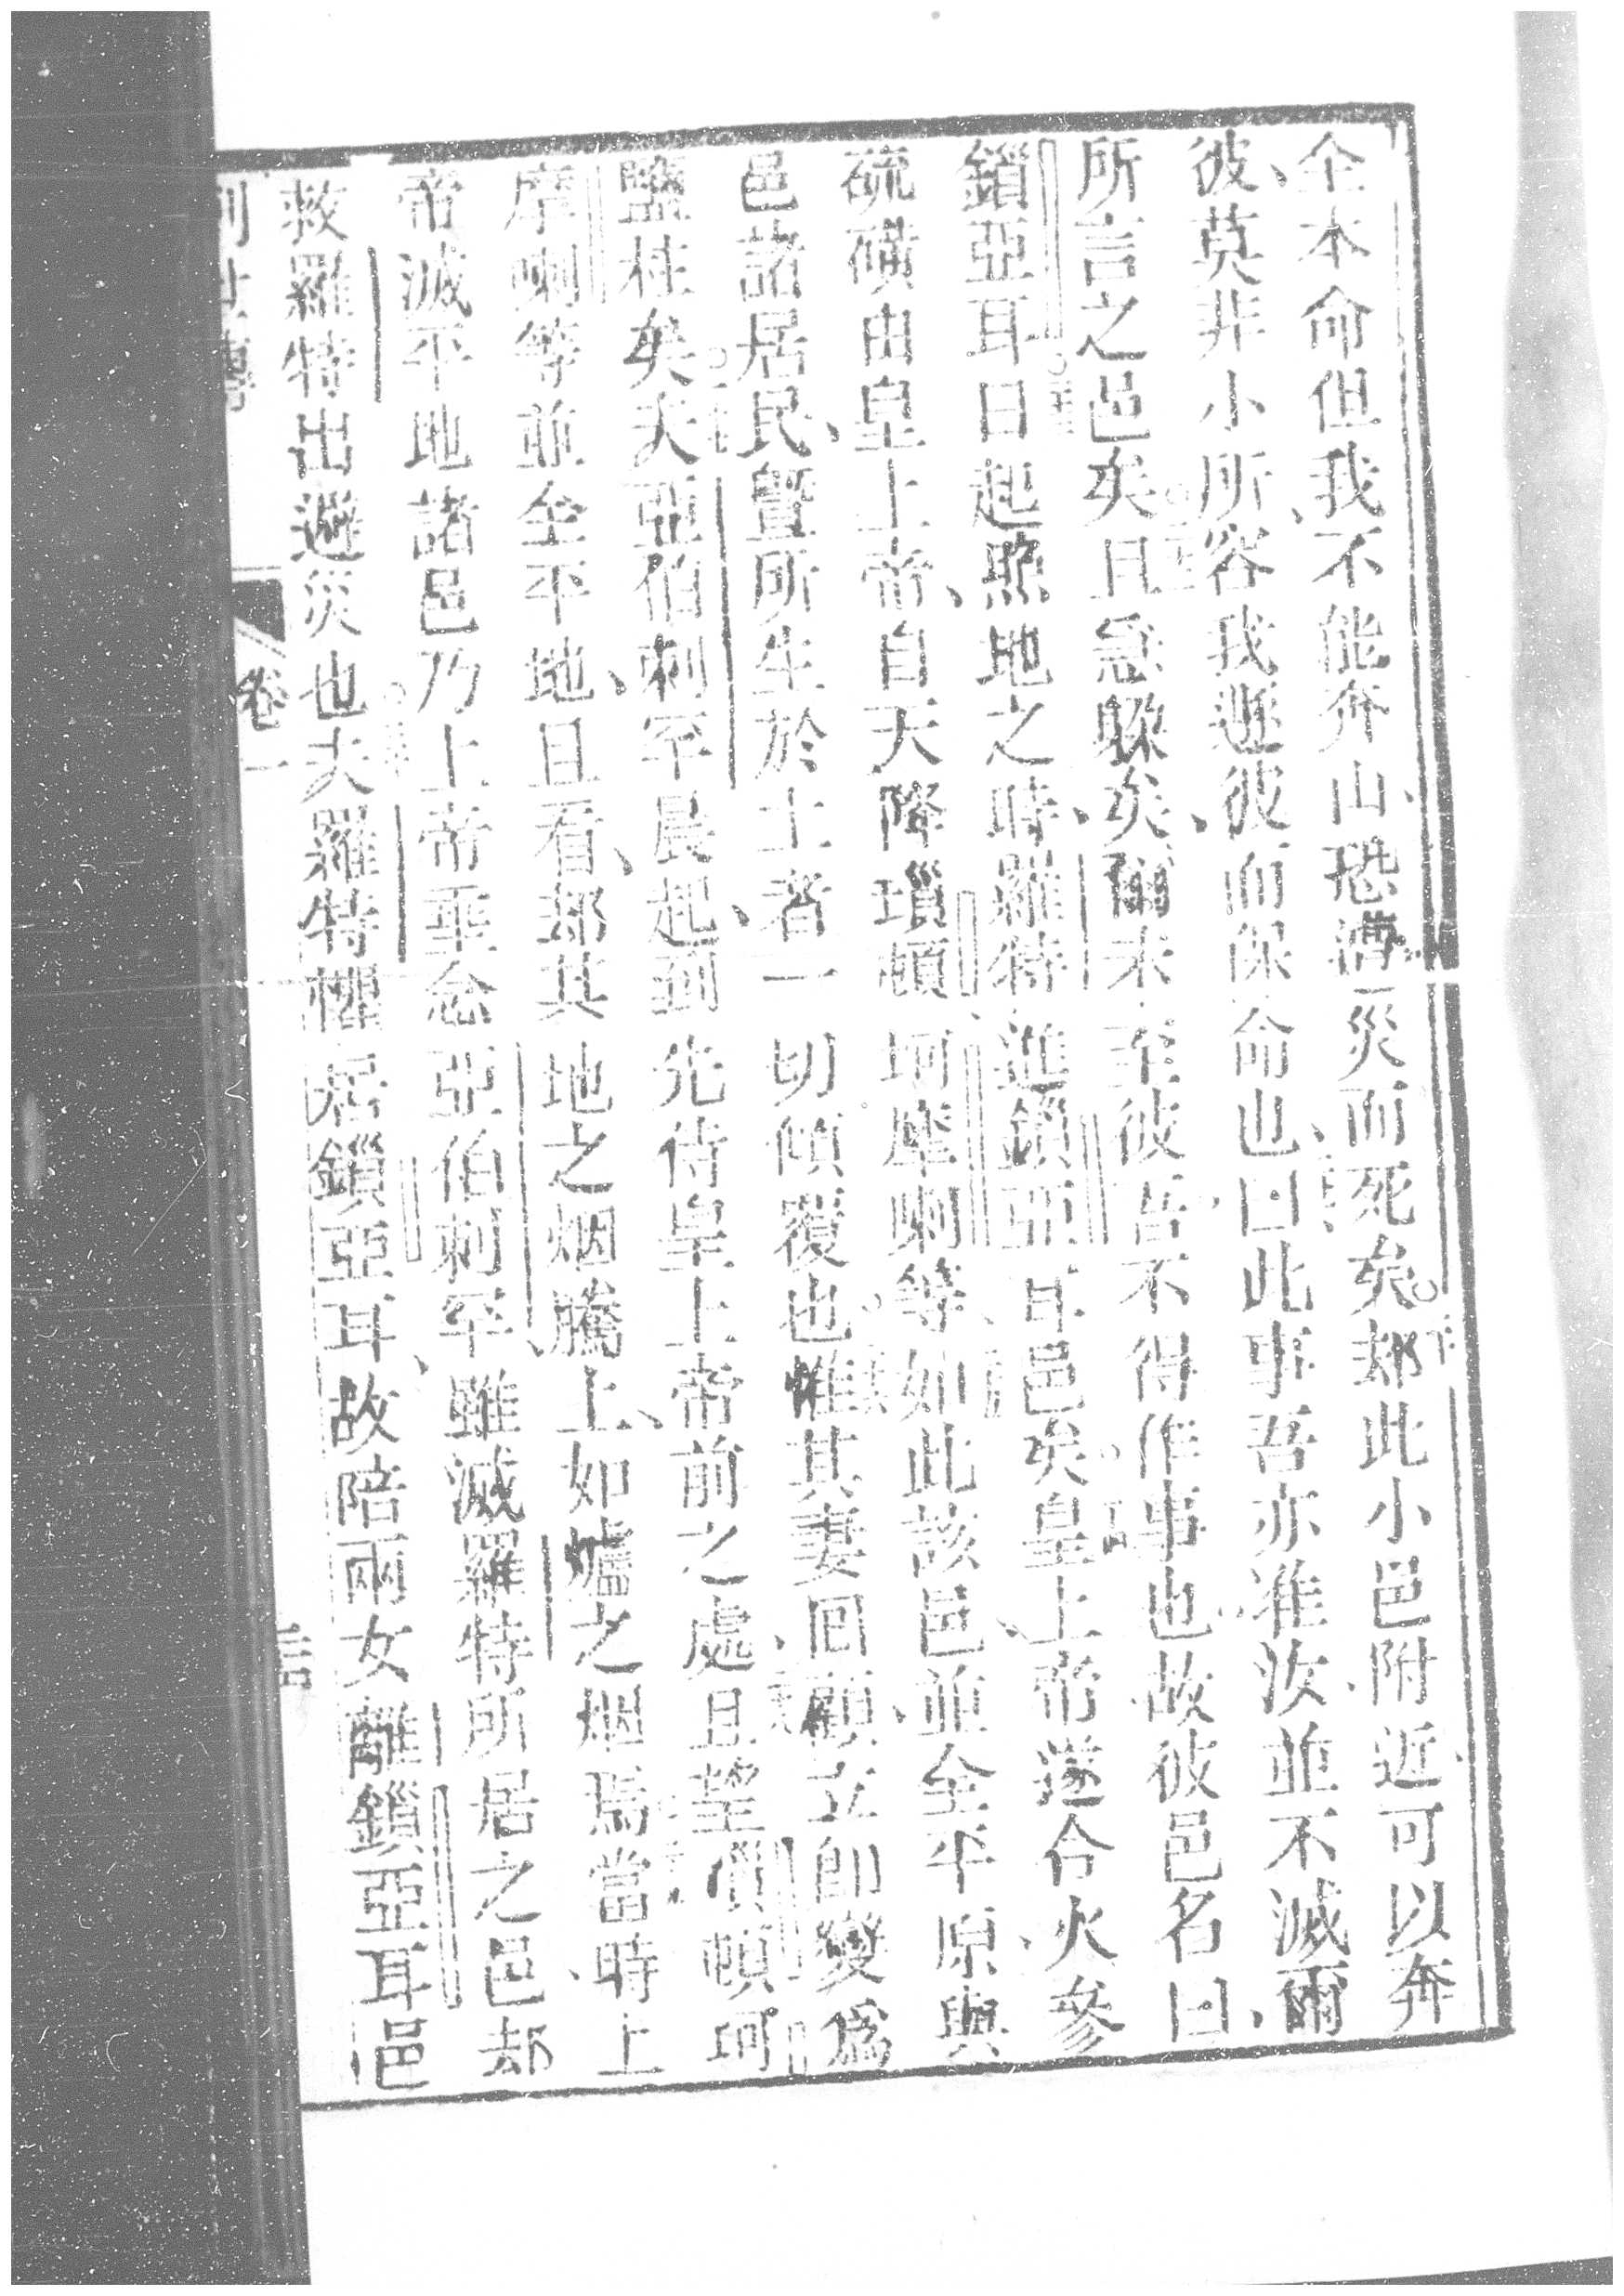 全本命、但我不能奔山、恐遭災而死矣。却此小邑附近、可以奔
彼、莫非小所容我遯彼而保命也、曰此事吾亦准汝、並不滅爾
所言之邑矣。且急躱矣、爾未至彼、吾不得作事也。故彼邑名曰、
鎖亞耳。日起照地之時、羅特進鎖亞耳邑矣。皇上帝遂令火參
硫磺由皇上帝、自天降瑣頓、坷摩喇等、如此該邑、並全平原、與
邑諸居民、曁所生於土者、一切傾覆也。惟其妻回顧、立卽變爲
鹽柱矣。夫亞伯刺罕晨起到先侍皇上帝前之處、且望瑣頓坷
摩喇等、並全平地、且看、却其地之烟騰上、如爐之烟焉。當時上
帝滅平地諸邑、乃上帝垂念亞伯刺罕、雖滅羅特所居之邑、却
救羅特出避災也。夫羅特懼居鎖亞耳、故陪兩女離鎖亞耳邑
卷一